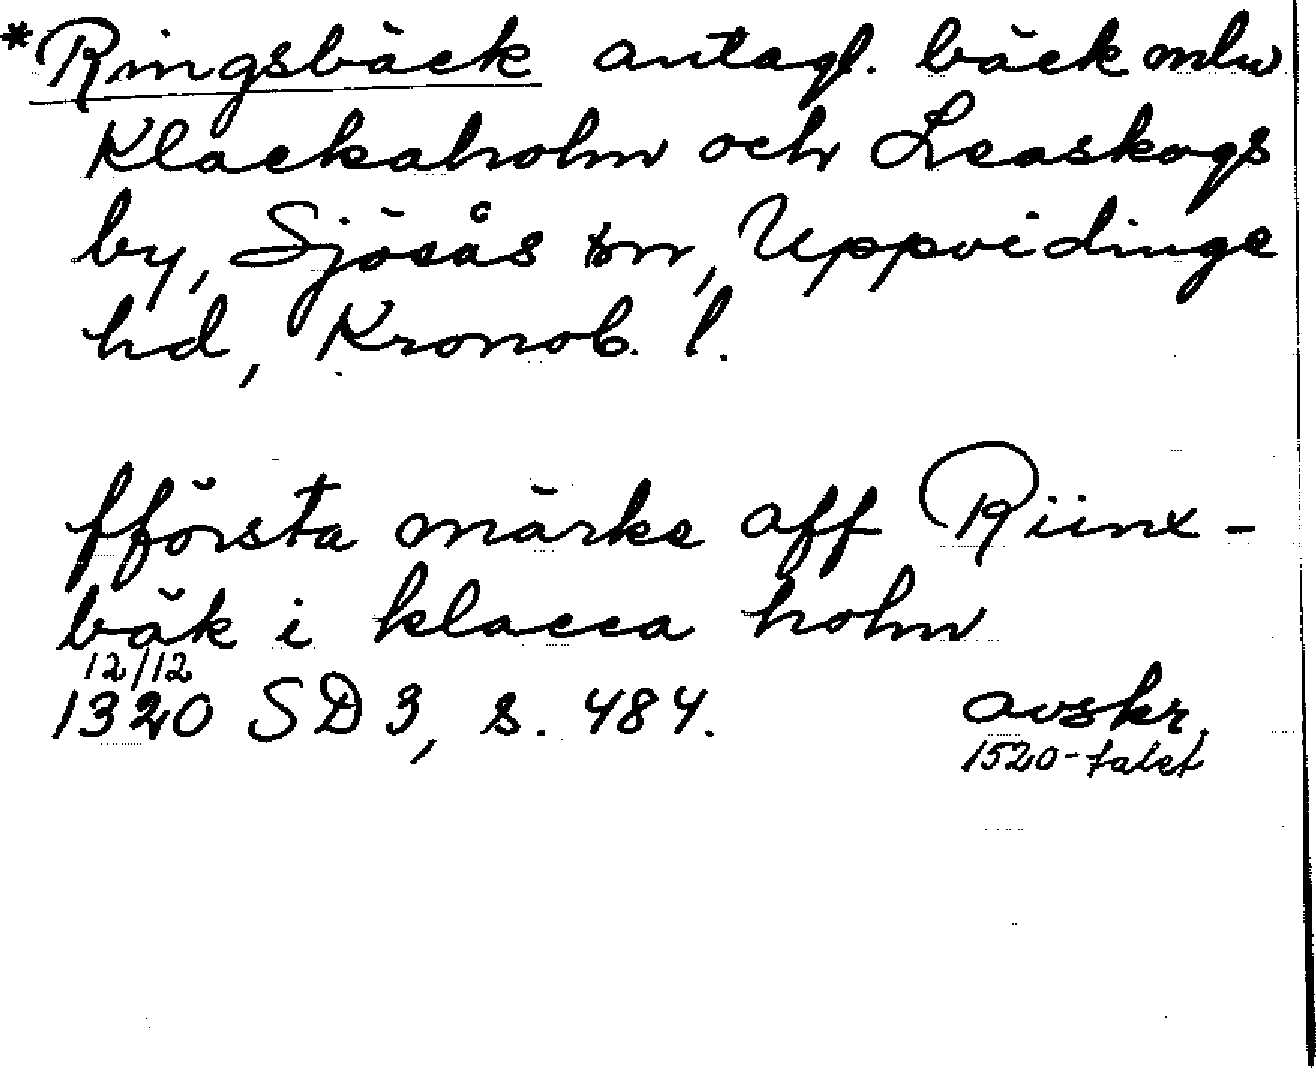 *Ringsbäck antagl. bäck mln
Klackaholm och Leaskogs
by, Sjösås sn, Uppvidinge
hd, Kronob. l.
fförsta märke aff Riinx-
bäk i klacca holm
12/12
1320 SD 3, s. 484. avskr.
1520-talet